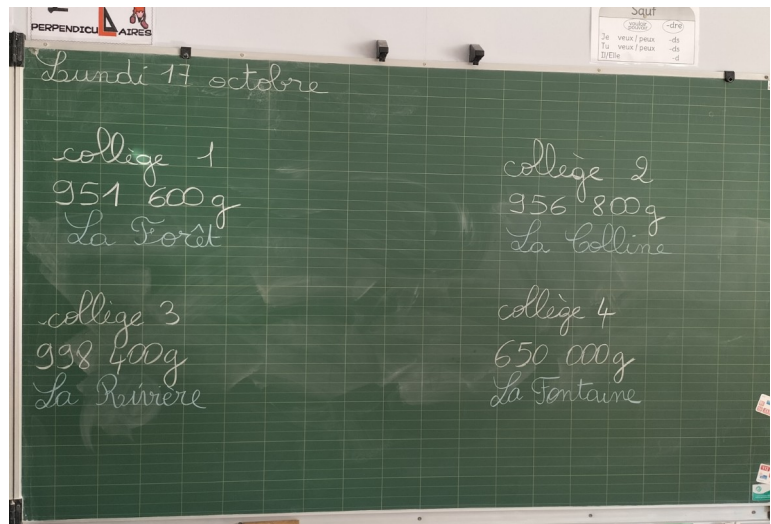 PERPENDICULAIRES
Sauf
vouloir
pouvoir
-dre
Je veux / peux -ds
Tu veux / peux -ds
Il/Elle -d
Lundi 17 octobre
collège 1
951 600g
La Forêt
collège 2
956 800g
La Colline
collège 3
998 400g
La Rivière
collège 4
650 000g
La Fontaine